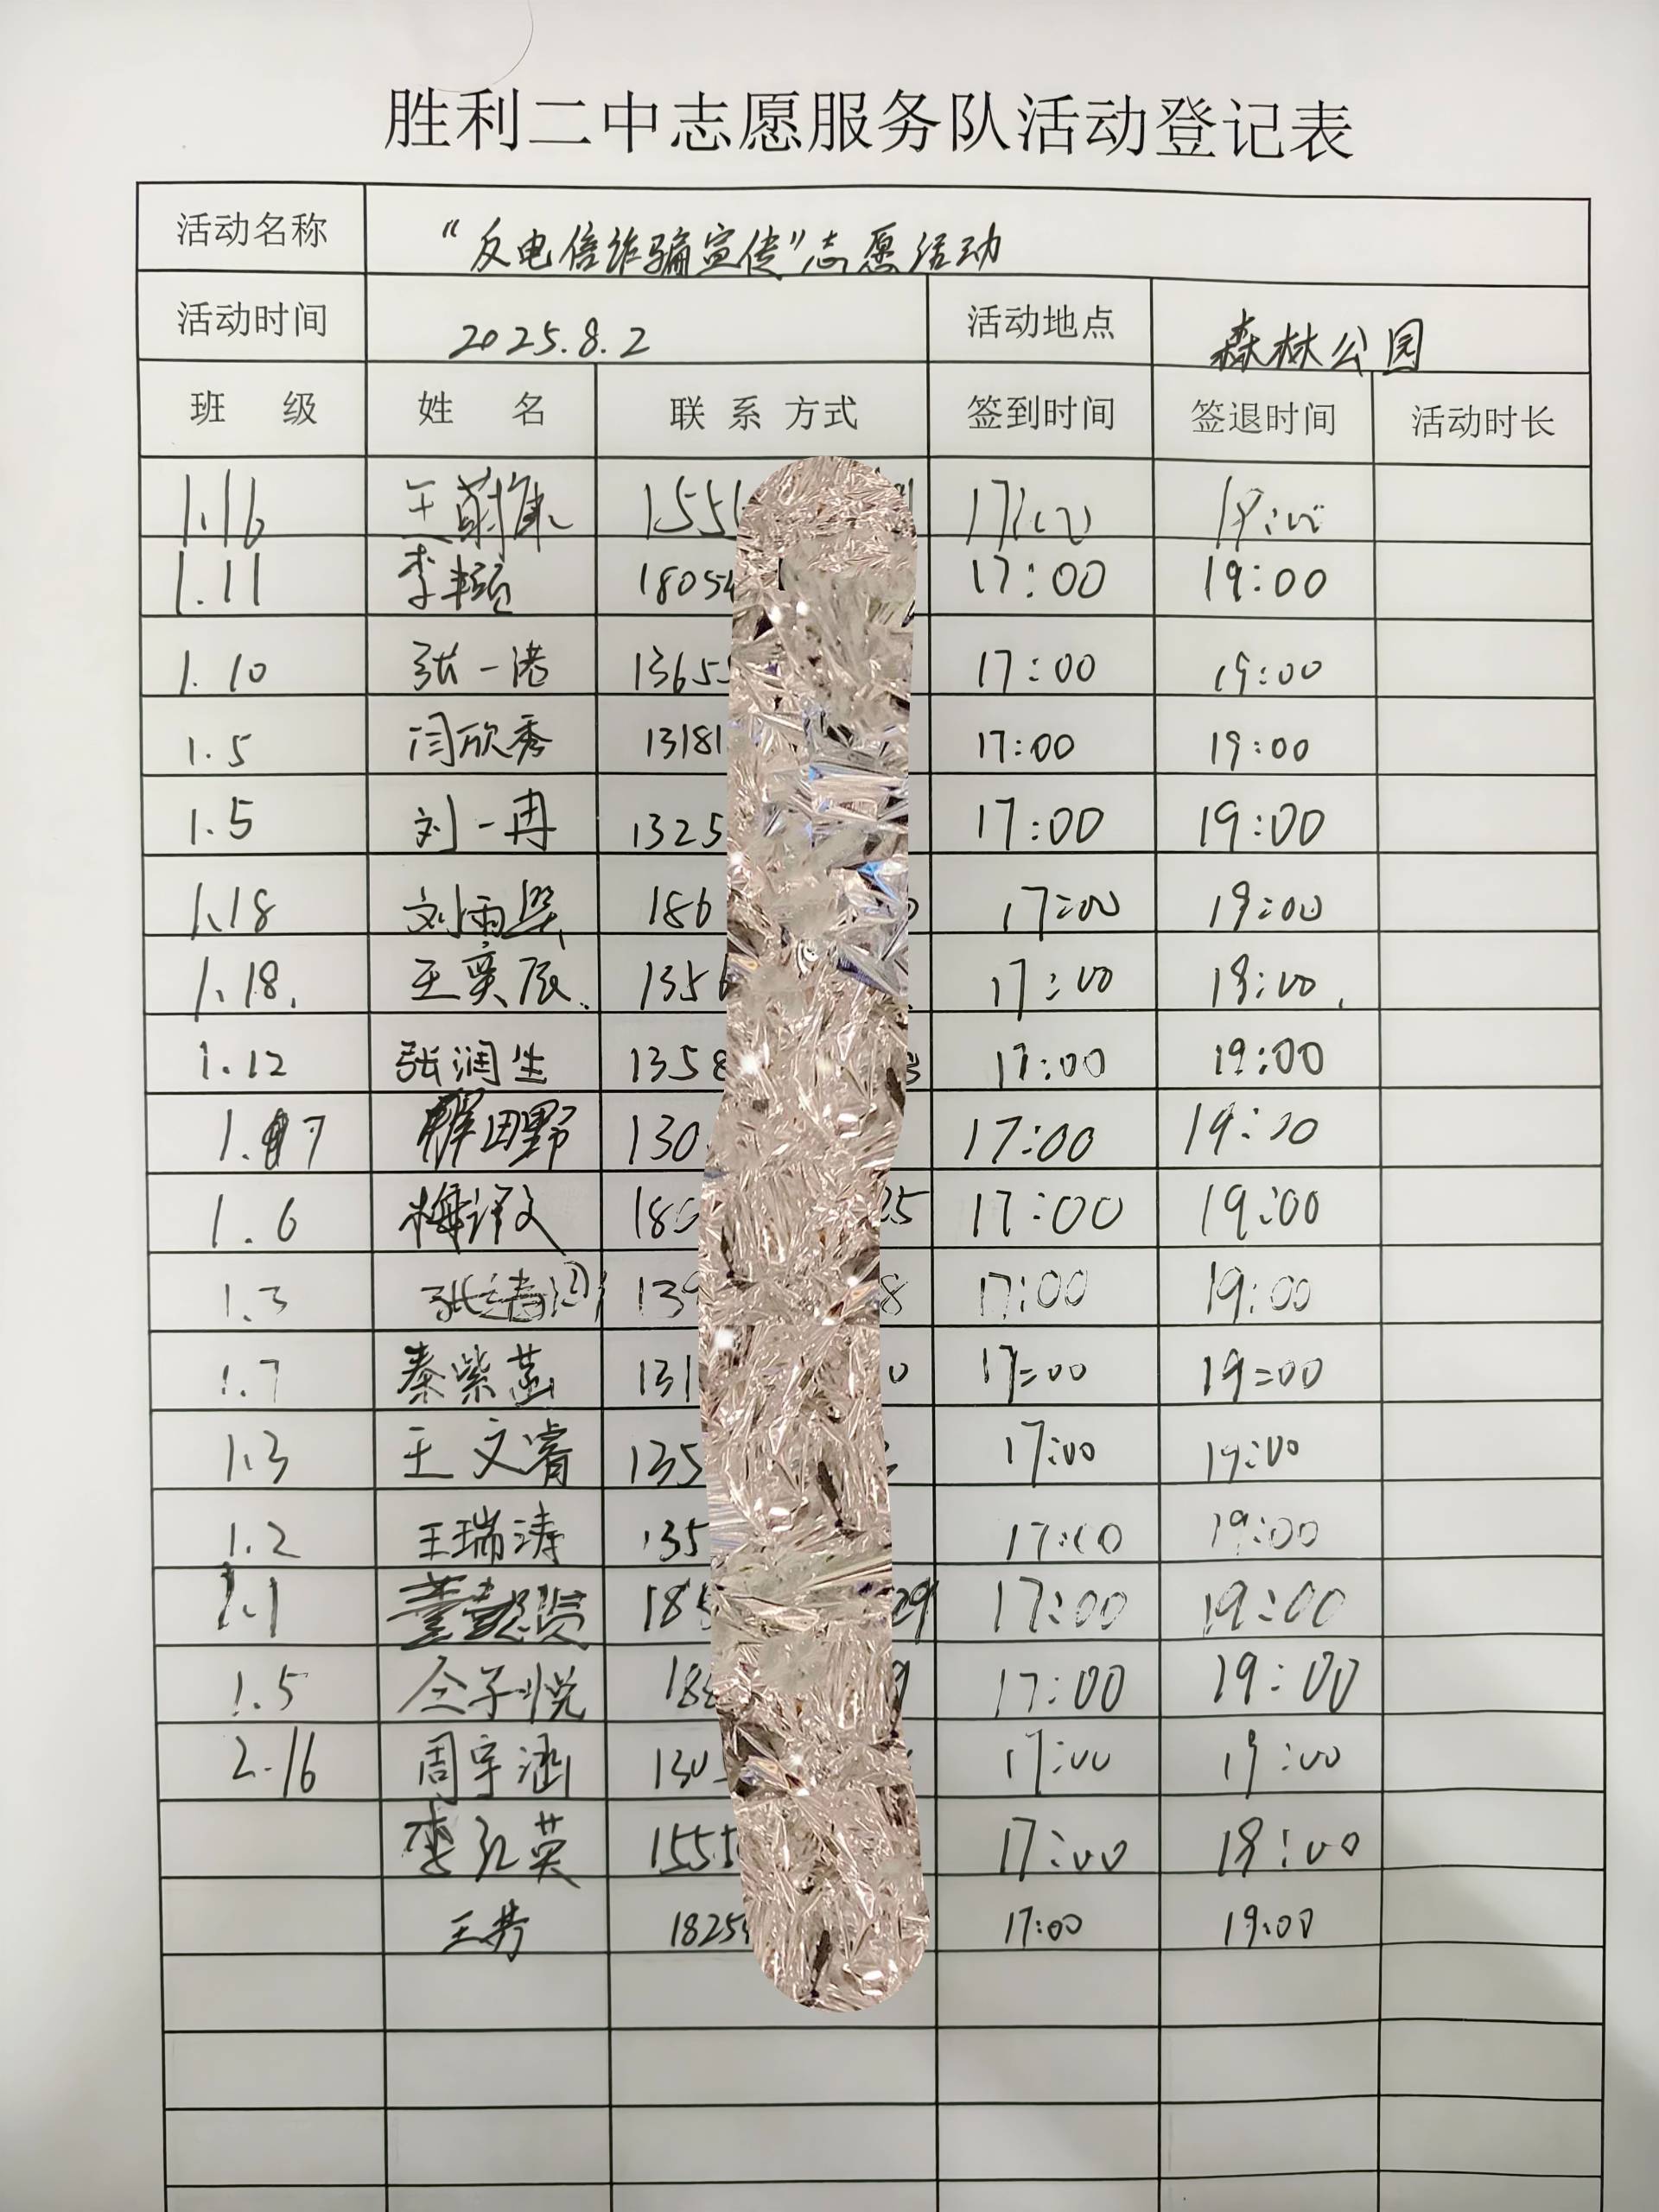 胜利二中志愿服务队活动登记表
活动名称 “反电信诈骗宣传”志愿活动
活动时间 2025.8.2 活动地点 森林公园
班 级 姓 名 联 系 方式 签到时间 签退时间 活动时长
1.16 155 19:00
1.11 李 1805 17:00 19:00
1.10 张一港 1365 17:00 19:00
1.5 闫欣秀 13181 17:00 19:00
1.5 刘一冉 1325 17:00 19:00
1.18 刘雨 186 17:00 19:00
1.18. 王奕辰. 1356 17:00 19:00.
1.12 张润生 1358 17:00 19:00
1. 7 田野 130 17:00 19:
1.6 梅译文 180 25 17:00 19:00
1.3 张 139 8 17:00 19:00
1.7 秦紫菡 131 0 17:00 19:00
1.3 王文睿 135 17:00 19:00
1.2 王瑞涛 135 17:00 19:00
1.1 董懿贤 185 29 17:00 19:00
1.5 仝子悦 188 9 17:00 19:00
2.16 周宇涵 130 17:00 19:00
李红英 1555 17:00 19:00
王芳 1825 17:00 19:00